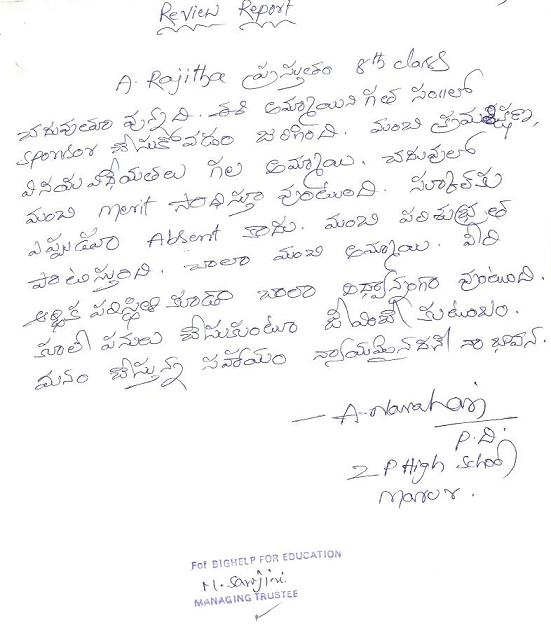 Review Report
A. Rajitha ప్రస్తుతం 8th class
చదువుతూ వున్నది. ఈ అమ్మాయిని గత సం॥లో
sponsor చేసుకోవడం జరిగింది. మంచి క్రమశిక్షణ,
వినయ విధేయతలు గల అమ్మాయి. చదువులో
మంచి merit సాధిస్తూ వుంటుంది. స్కూల్‌కు
ఎప్పుడూ Absent కాదు. మంచి పరిశుభ్రత
పాటిస్తుంది. చాలా మంచి అమ్మాయి. వీరి
ఆర్థిక పరిస్థితి కూడా చాలా వుంటుంది.
కూలీ పనులు చేసుకుంటూ జీవించే కుటుంబం.
మనం చేస్తున్న సహాయం న్యాయమైనదని నా భావన.
— A. Narahari
P.D.
Z P High School
Marur.
For BIGHELP FOR EDUCATION
M. Sarojini
MANAGING TRUSTEE